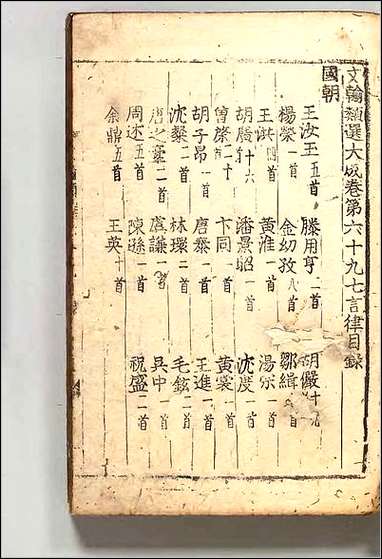 文翰類選大成卷第六十九七言律目錄
國朝
王汝玉五首 滕用亨二首 胡儼十九
楊榮一首 金幼孜八首 鄒緝 首
王洪四首 黃淮一首 湯宗一首
胡廣十六 潘景昭一首 沈度一首
曾棨二十 卞同一首 黃裳一首
胡子昂一首 唐泰一首 王進一首
沈粲二首 林環二首 毛鉉二首
唐之淳二首 虞謙一首 吳中一首
周述五首 陳璲一首 祝盛二首
余鼎五首 王英十首